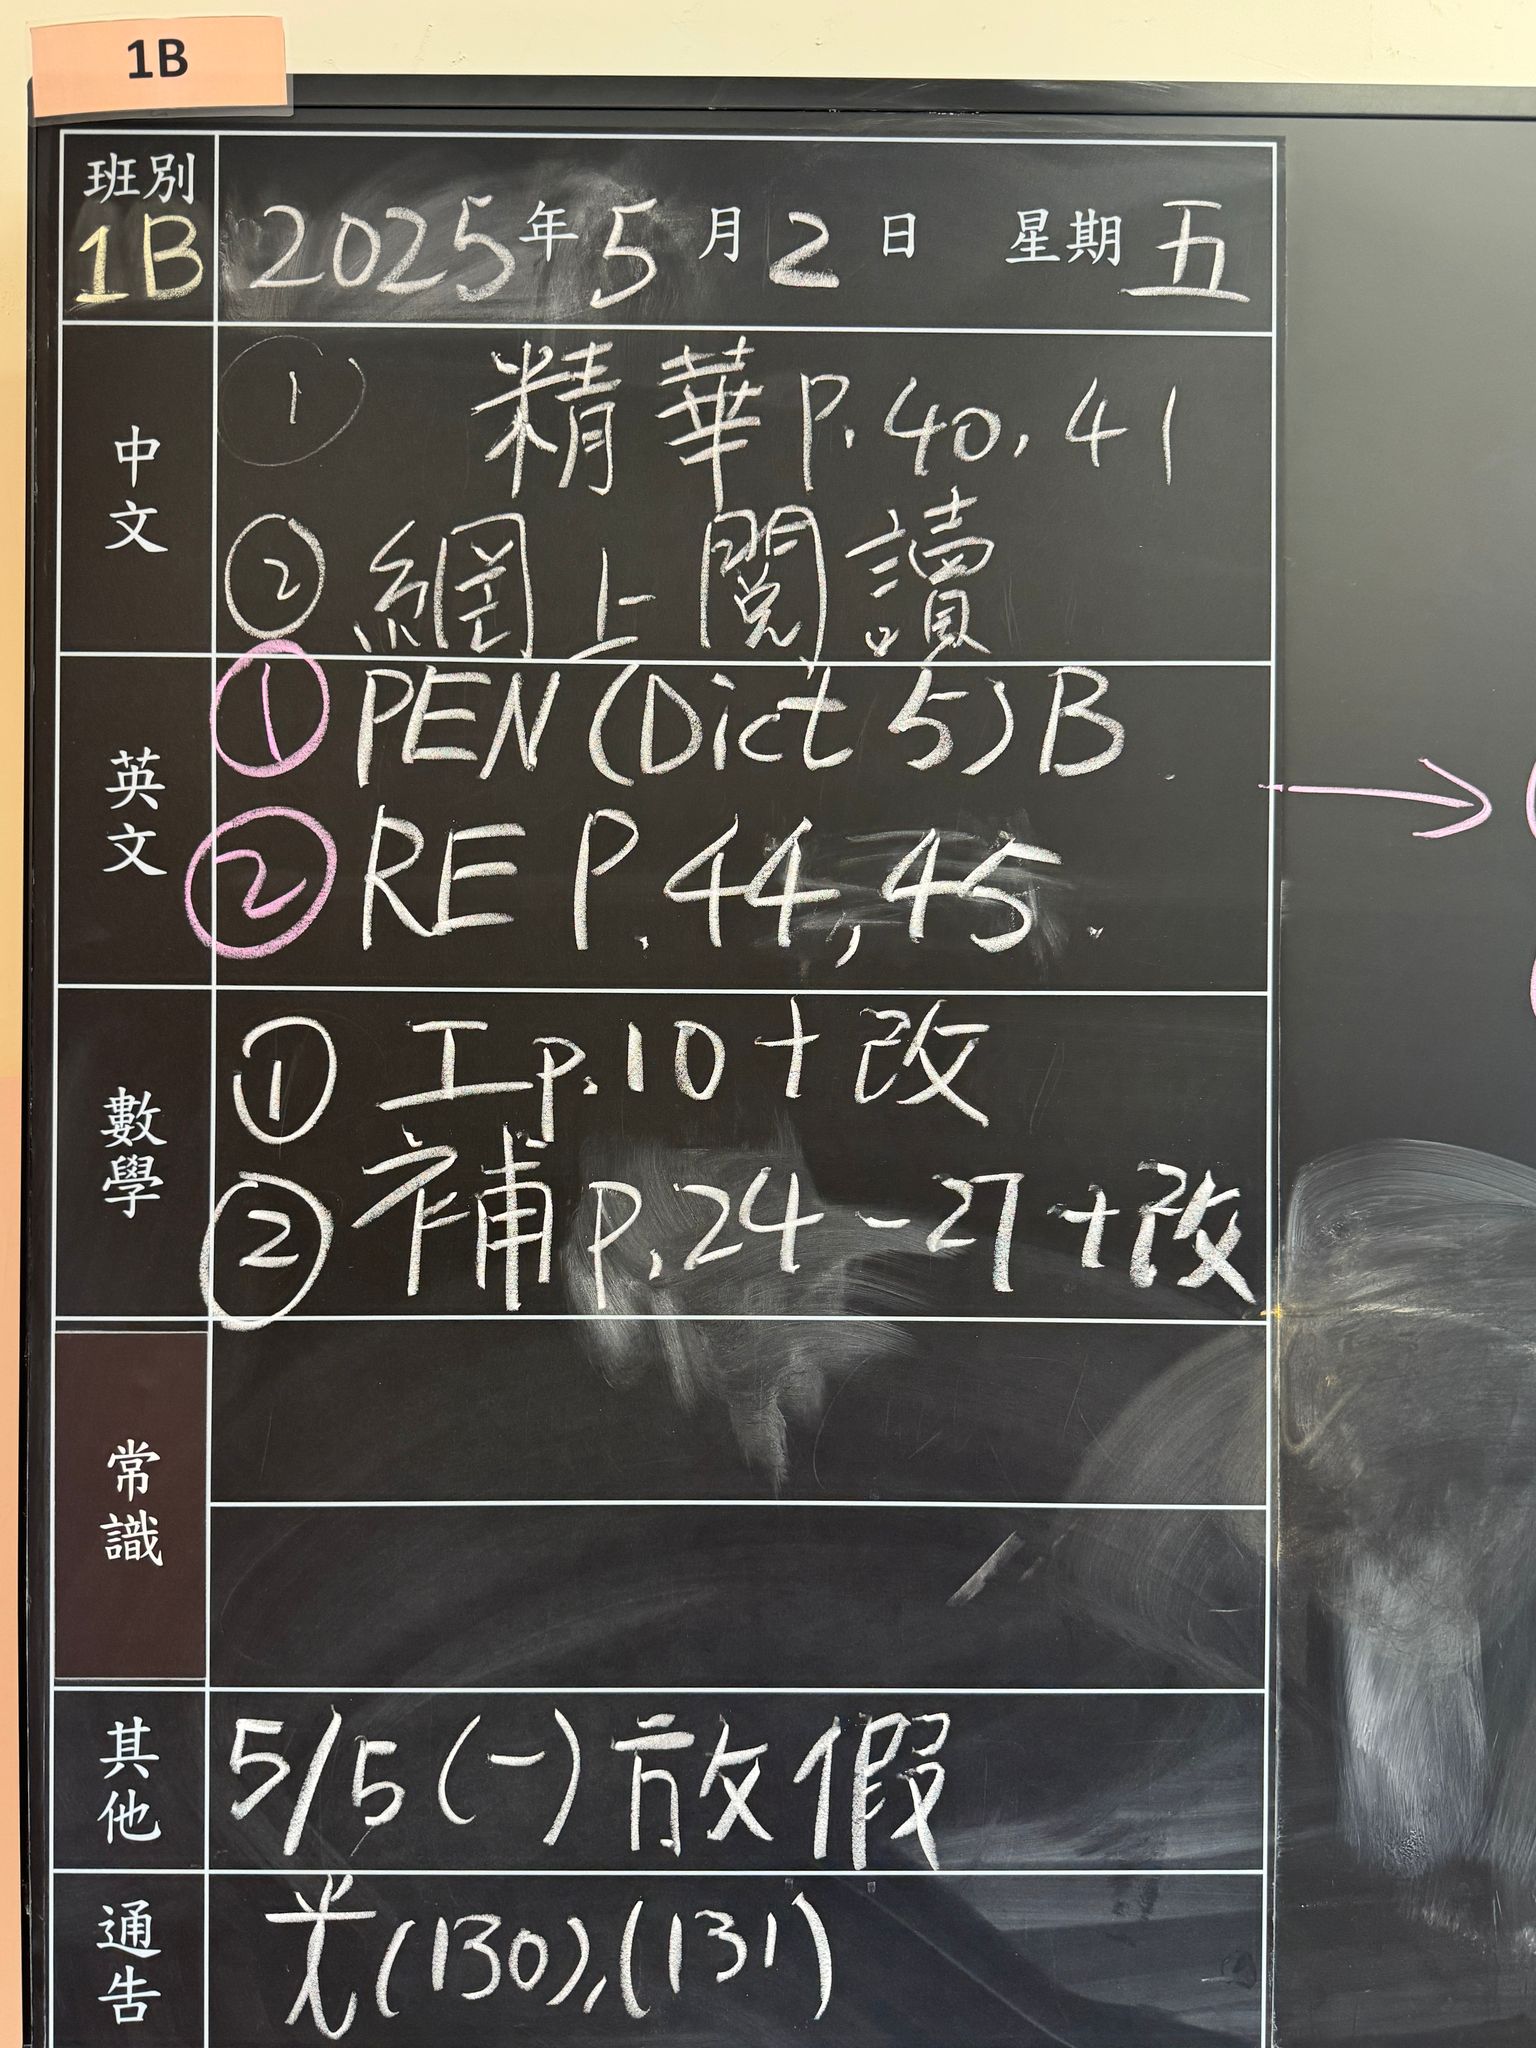 1B
班別
1B
2025年5月2日 星期五
中文
① 精華P.40,41
② 網上閱讀
英文
① PEN (Dict 5) B
② RE P.44,45.
數學
① 工p.10+改
② 補p.24-27+改
常識
其他
5/5(一)放假
通告
光(130),(131)